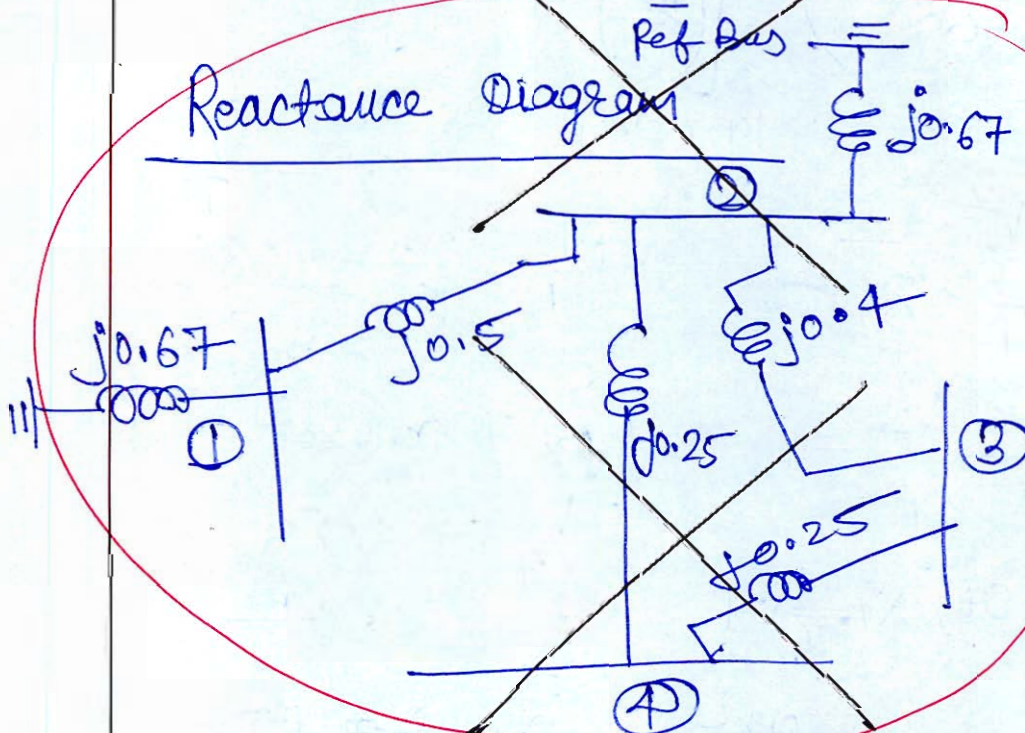 Ref Bus
Reactance Diagram
j0.67
②
j0.4
j0.67
j0.5
①
j0.25
③
j0.25
④